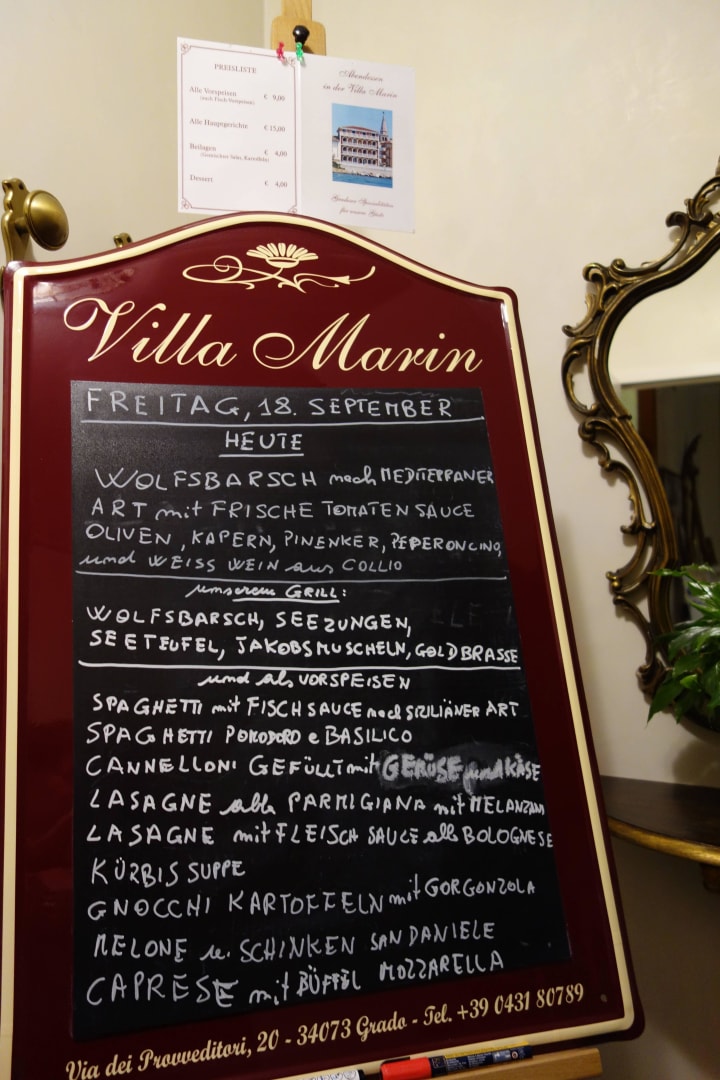 PREISLISTE
Alle Vorspeisen € 9,00
(auch Fisch-Vorspeisen)
Alle Hauptgerichte € 15,00
Beilagen € 4,00
Dessert € 4,00
Abendessen
in der Villa Marin
Gradeser Spezialitäten
für unsere Gäste
Villa Marin
FREITAG, 18. SEPTEMBER
HEUTE
WOLFSBARSCH nach MEDITERRANER
ART mit FRISCHE TOMATEN SAUCE
OLIVEN, KAPERN, PINENKER, PEPERONCINO,
und WEISS WEIN aus COLLIO
unserem GRILL:
WOLFSBARSCH, SEEZUNGEN,
SEETEUFEL, JAKOBSMUSCHELN, GOLDBRASSE
und als VORSPEISEN
SPAGHETTI mit FISCH SAUCE nach SIZILIÄNER ART
SPAGHETTI POMODORO e BASILICO
CANNELLONI GEFÜLLT mit GEMÜSE und KÄSE
LASAGNE alla PARMIGIANA mit MELANZANI
LASAGNE mit FLEISCH SAUCE alla BOLOGNESE
KÜRBIS SUPPE
GNOCCHI KARTOFFELN mit GORGONZOLA
MELONE u. SCHINKEN SAN DANIELE
CAPRESE mit BÜFFEL MOZZARELLA
Via dei Provveditori, 20 - 34073 Grado - Tel. +39 0431 80789